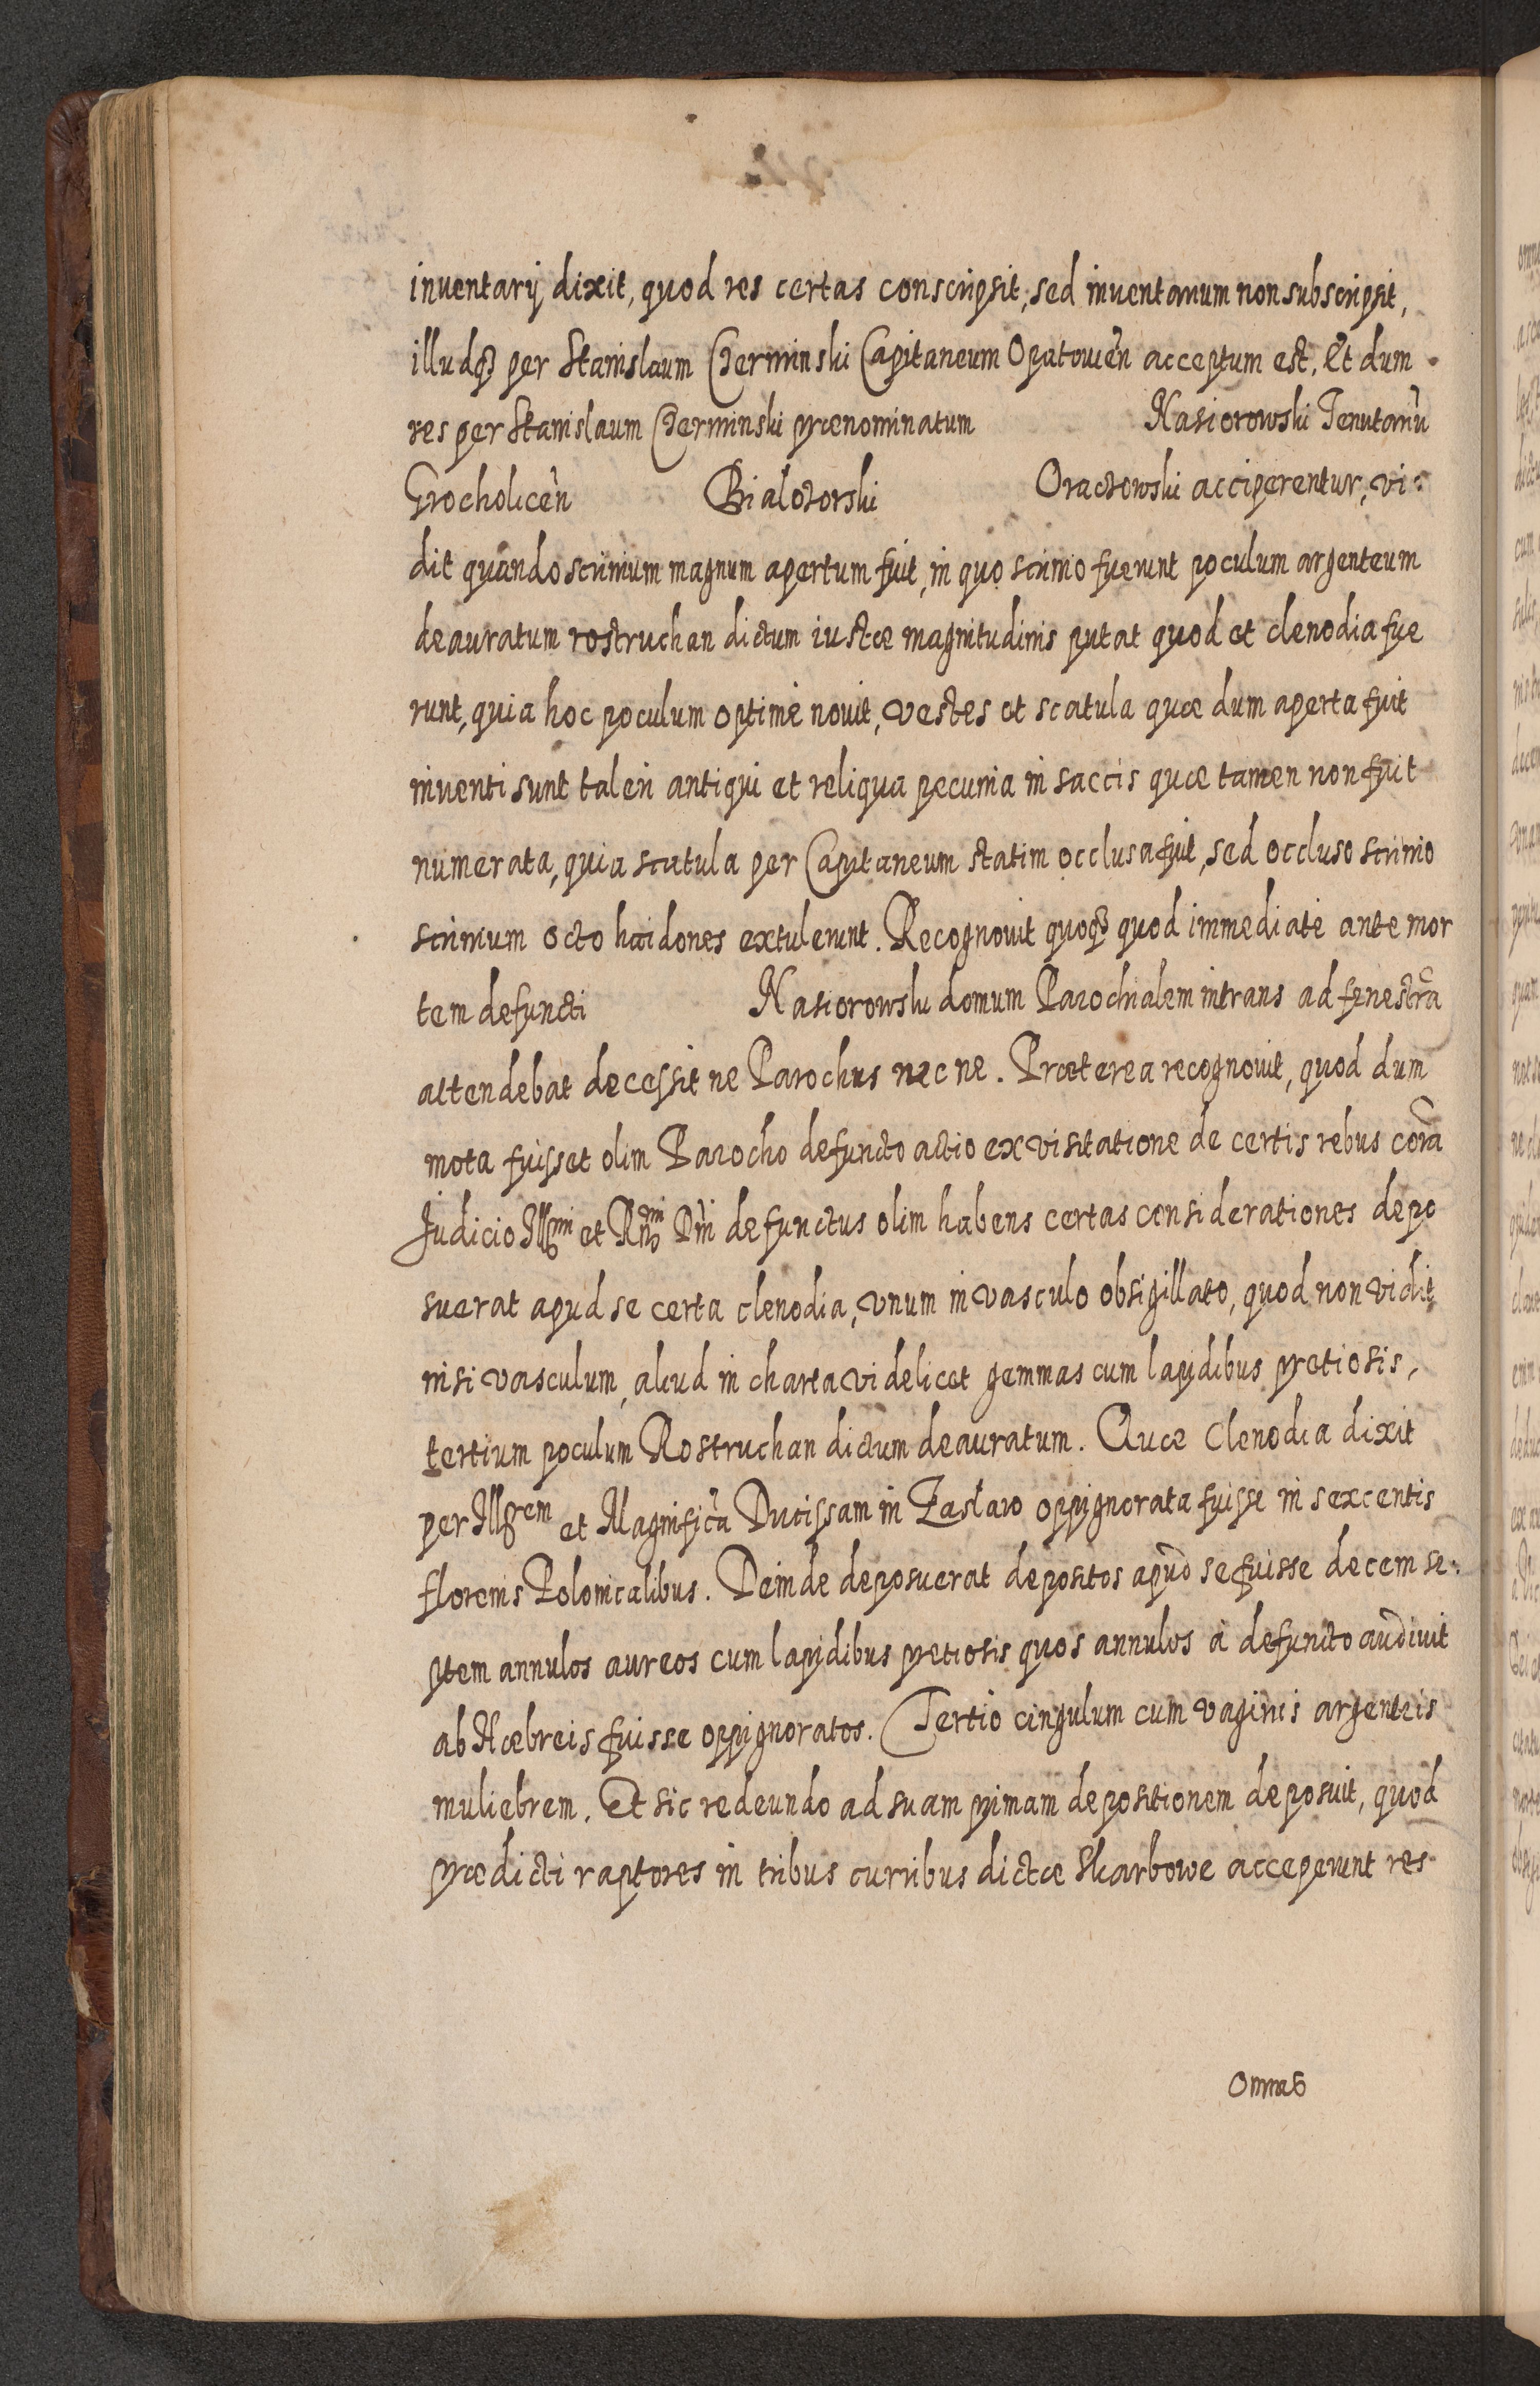 inventarij dixit, quod res certas conscripsit, sed inventarium non subscripsit,
illudq3 per Stanislaum Czerminski Capitaneum Opatowień acceptum est. Et dum
res per Stanislaum Czerminski prænominatum Nasiorowski Tenutariũ
Grocholiceñ Bialozorski Oraczowski acciperentur, vi:
dit quando scrinium magnum apertum fuit, in quo scrinio fuerunt poculum argenteum
deauratum rostruchan dictum iustæ magnitudinis putat quod et clenodia fue
runt, quia hoc poculum optimè novit, vestes et scatula quæ dum aperta fuit
inventi sunt taleri antiqui et reliqua pecunia in saccis quæ tamen non fuit
numerata, quia scatula per Capitaneum statim occlusa fuit, sed occluso scrinio
scrinium octo haidones extulerunt. Recognovit quoq3 quod immediatè ante mor
tem defuncti Nasiorowski domum Parochialem intrans ad fenestrã
attendebat decessit ne Parochus nec ne. Præterea recognovit, quod dum
mota fuisset olim Parocho defuncto actio ex visitatione de certis rebus corã
Judicio Illssmi et Rndmi Dni defunctus olim habens certas considerationes depo
suerat apud se certa clenodia, vnum in vasculo obsigillato, quod non vidit
nisi vasculum, aliud in charta videlicet gemmas cum lapidibus pretiosis,
tertium poculum Rostruchan dictum deauratum. Quæ Clenodia dixit
per Illgrem et Magnificã Ducissam in Zaslaw oppignorata fuisse in sexcentis
florenis Polonicalibus. Deinde deposuerat depositos apud se fuisse decem se:
ptem annulos aureos cum lapidibus pretiosis quos annulos à defuncto audivit
ab Hæbreis fuisse oppignoratos. Tertio cingulum cum vaginis argenteis
muliebrem. Et sic redeundo ad suam primam depositionem deposuit, quod
prædicti raptores in tribus curribus dictæ Skarbowe acceperunt res
omnes